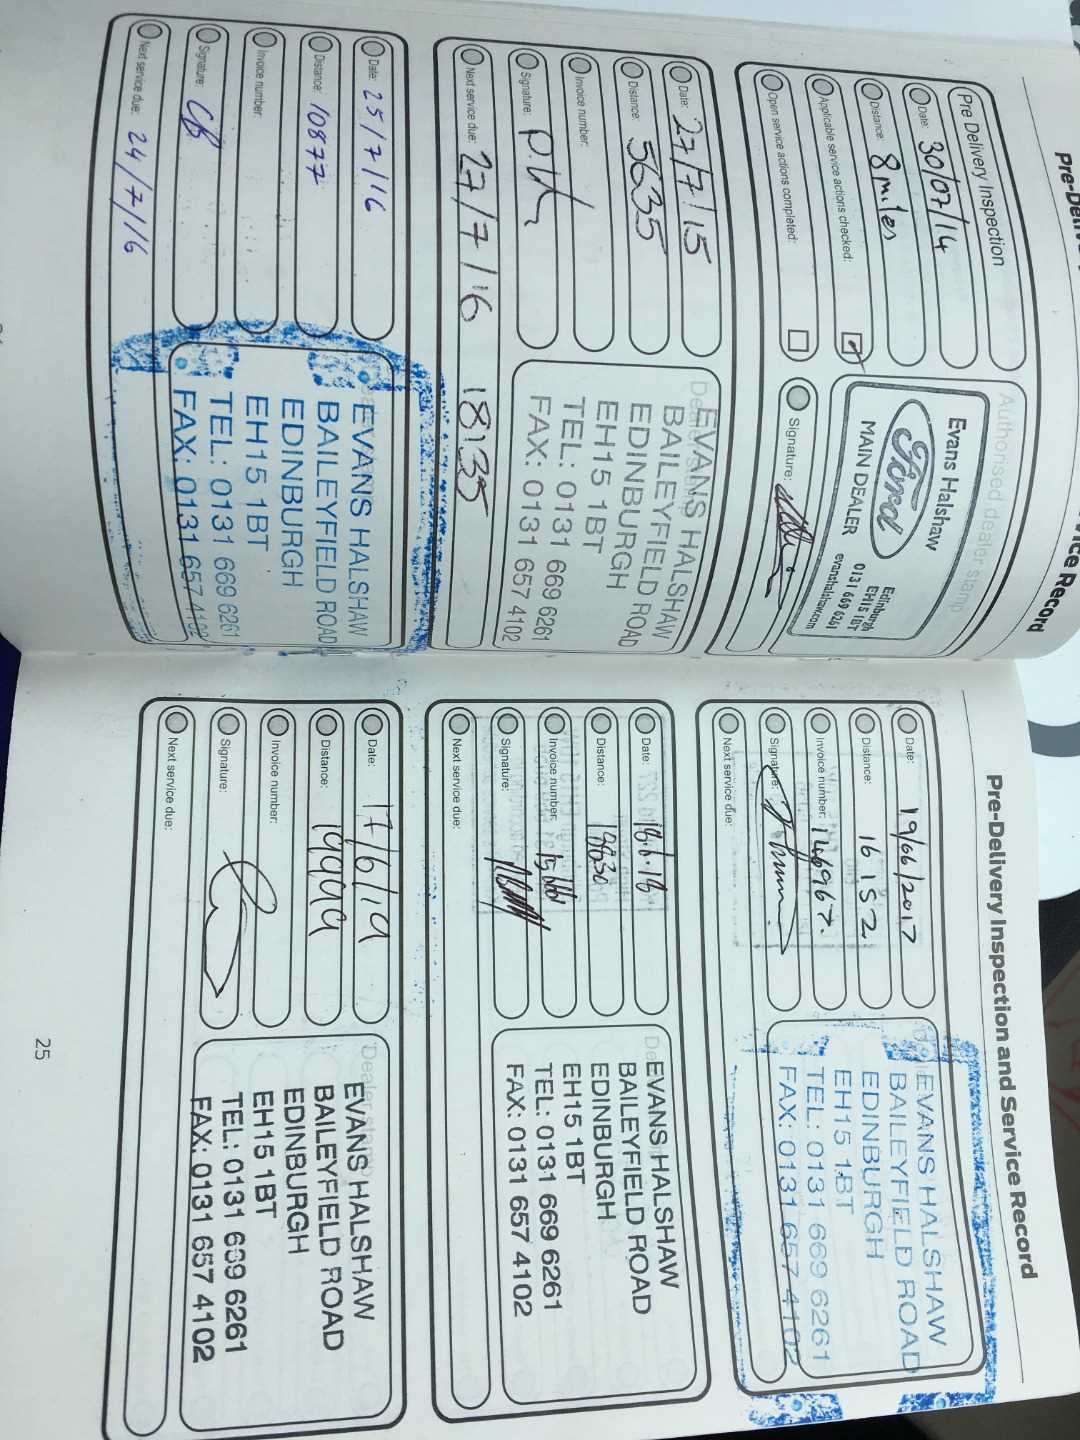 Pre-Delivery
Service Record
Pre Delivery Inspection
Date: 30/07/14
Distance: 8 miles
Applicable service actions checked:
Open service actions completed:
Authorised dealer stamp
Evans Halshaw
Ford
MAIN DEALER
Edinburgh
EH15 1BT
0131 669 6261
evanshalshaw.com
Signature:
Date: 27/7/15
Distance: 5635
Invoice number:
Signature:
Next service due: 27/7/16 18135
Dealer stamp
EVANS HALSHAW
BAILEYFIELD ROAD
EDINBURGH
EH15 1BT
TEL: 0131 669 6261
FAX: 0131 657 4102
Date: 25/7/16
Distance: 10877
Invoice number:
Signature: CB
Next service due: 24/7/16
EVANS HALSHAW
BAILEYFIELD ROAD
EDINBURGH
EH15 1BT
TEL: 0131 669 6261
FAX: 0131 657 4102
Pre-Delivery Inspection and Service Record
Date: 19/06/2017
Distance: 16152
Invoice number: 146967
Signature:
Next service due:
EVANS HALSHAW
BAILEYFIELD ROAD
EDINBURGH
EH15 1BT
TEL: 0131 669 6261
FAX: 0131 657 4102
Date: 18.6.18
Distance: 18630
Invoice number:
Signature:
Next service due:
EVANS HALSHAW
BAILEYFIELD ROAD
EDINBURGH
EH15 1BT
TEL: 0131 669 6261
FAX: 0131 657 4102
Date: 17/6/19
Distance: 19999
Invoice number:
Signature:
Next service due:
Dealer stamp
EVANS HALSHAW
BAILEYFIELD ROAD
EDINBURGH
EH15 1BT
TEL: 0131 669 6261
FAX: 0131 657 4102
25